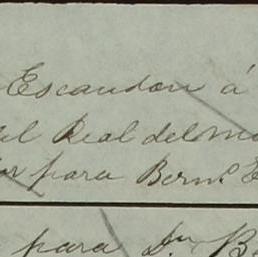 Escandon á
el Real del mo
or para Bern.
para Dn B